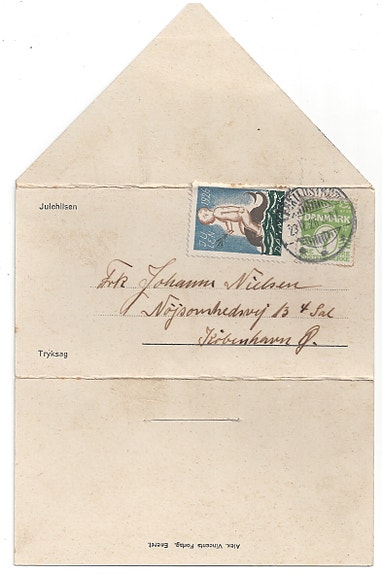 Julehilsen
1926
DANMARK
Frk Johanne Nielsen
Nøjsomhedsvej 13 4 Sal
København Ø.
Tryksag
Alex. Vincents Forlag. Eneret.